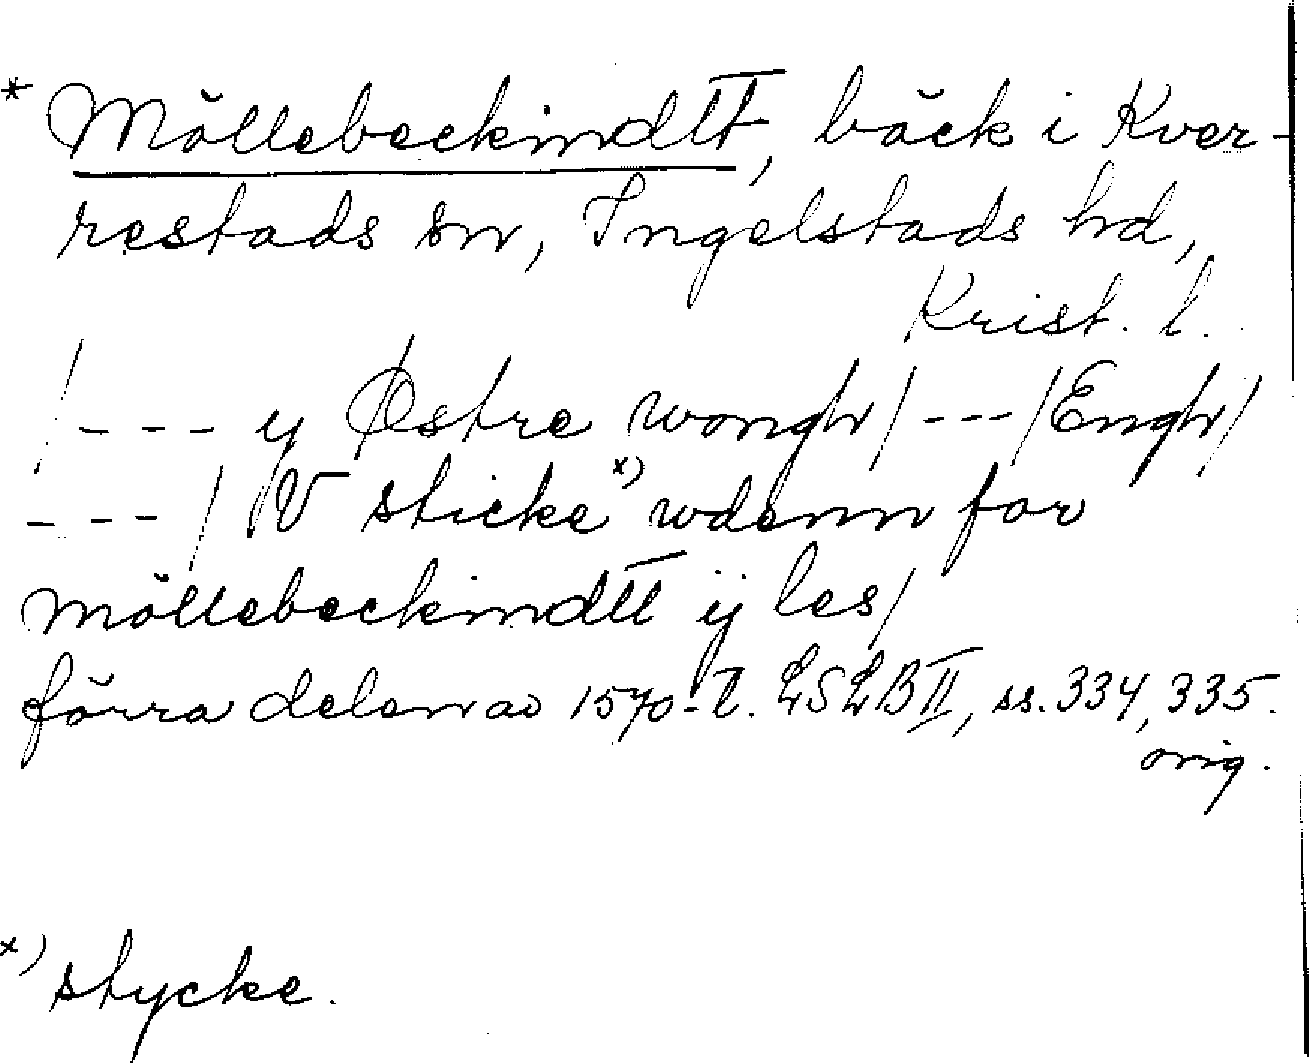 * Möllebeckindtt, bäck i Kver-
restads sn, Ingelstads hd,
Krist. l.
/--- y Østre wongh/---/Engh/
---/ V sticke x) wdenn for
möllebeckindtt ij les/
förra delen av 1570-t. LSLB II, ss. 334, 335.
orig.
x) stycke.